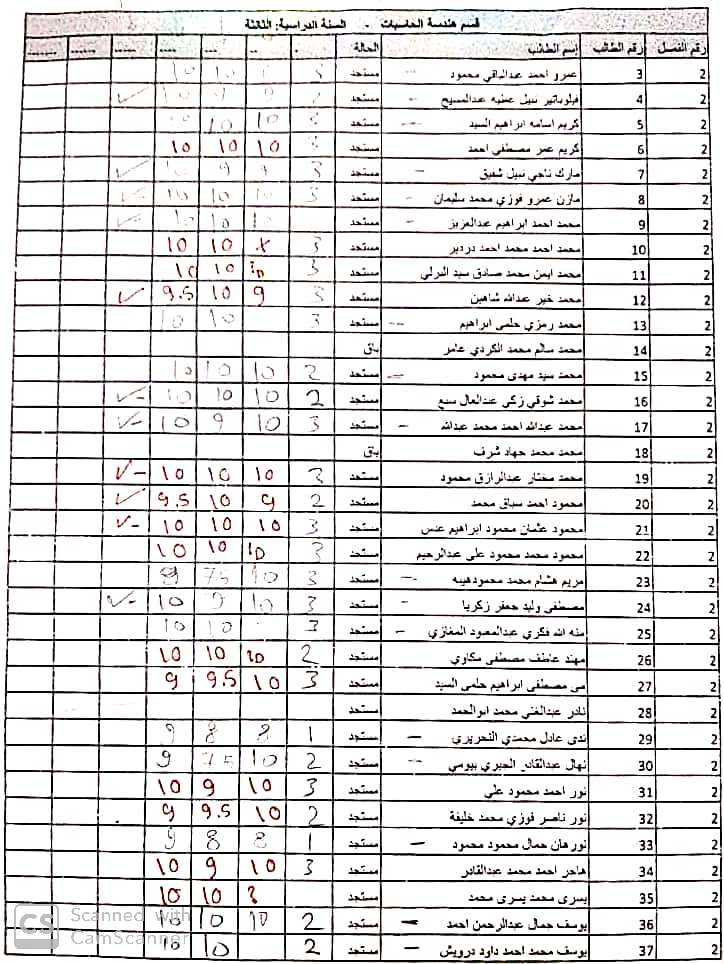 قسم هندسة الحاسبات - السنة الدراسية: الثالثة
رقم الفصل رقم الطالب إسم الطالب الحالة .. ... .... ..... ...... .......
2 3 عمرو احمد عبدالباقي محمود مستجد 3 10 10
2 4 فيلوباتير نبيل عطيه عبدالمسيح مستجد 9 9 10 ✓
2 5 كريم اسامه ابراهيم السيد مستجد 10 10
2 6 كريم عمر مصطفى احمد مستجد 10 10 10
2 7 مارك ناجي نبيل شفيق مستجد 3 9 10 ✓
2 8 مازن عمرو فوزي محمد سليمان مستجد 3 10 10 10 ✓
2 9 محمد احمد ابراهيم عبدالعزيز مستجد 10 10 10 ✓
2 10 محمد احمد محمد احمد دردير مستجد 3 x 10 10
2 11 محمد ايمن محمد صادق سيد البرلي مستجد 3 10 10 10
2 12 محمد خير عبدالله شاهين مستجد 3 9 10 9.5 ✓
2 13 محمد رمزي حلمى ابراهيم مستجد 3 10 10
2 14 محمد سالم محمد الكردي عامر باق
2 15 محمد سيد مهدى محمود مستجد 2 10 10 10
2 16 محمد شوقي زكى عبدالعال سبع مستجد 2 10 10 10 ✓-
2 17 محمد عبدالله احمد محمد عبدالله مستجد 3 10 9 10 ✓-
2 18 محمد محمد جهاد شرف باق
2 19 محمد مختار عبدالرازق محمود مستجد 3 10 10 10 ✓-
2 20 محمود احمد سباق محمد مستجد 2 9 10 9.5 ✓
2 21 محمود عثمان محمود ابراهيم عدس مستجد 3 10 10 10 ✓-
2 22 محمود محمد محمود على عبدالرحيم مستجد 3 10 10 10
2 23 مريم هشام محمد محمودهيبه مستجد 3 10 7.5 9
2 24 مصطفى وليد جعفر زكريا مستجد 3 10 9 10 ✓-
2 25 منه الله فكري عبدالمعبود المغازي مستجد 3 10 10
2 26 مهند عاطف مصطفى مكاوي مستجد 2 10 10 10
2 27 مى مصطفى ابراهيم حلمى السيد مستجد 3 10 9.5 9
2 28 نادر عبدالغني محمد ابوالحمد مستجد
2 29 ندى عادل محمدي النحريري مستجد 1 8 8 9
2 30 نهال عبدالقادر الجيري بيومي مستجد 2 10 7.5 9
2 31 نور احمد محمود على مستجد 3 10 9 10
2 32 نور ناصر فوزي محمد خليفة مستجد 2 10 9.5 9
2 33 نورهان جمال محمود محمود مستجد 1 8 8 9
2 34 هاجر احمد محمد عبدالقادر مستجد 3 10 9 10
2 35 يسرى محمد يسرى محمد مستجد ? 10 10
2 36 يوسف جمال عبدالرحمن احمد مستجد 2 10 10 10
2 37 يوسف محمد احمد داود درويش مستجد 2 10 10
CS Scanned with
CamScanner